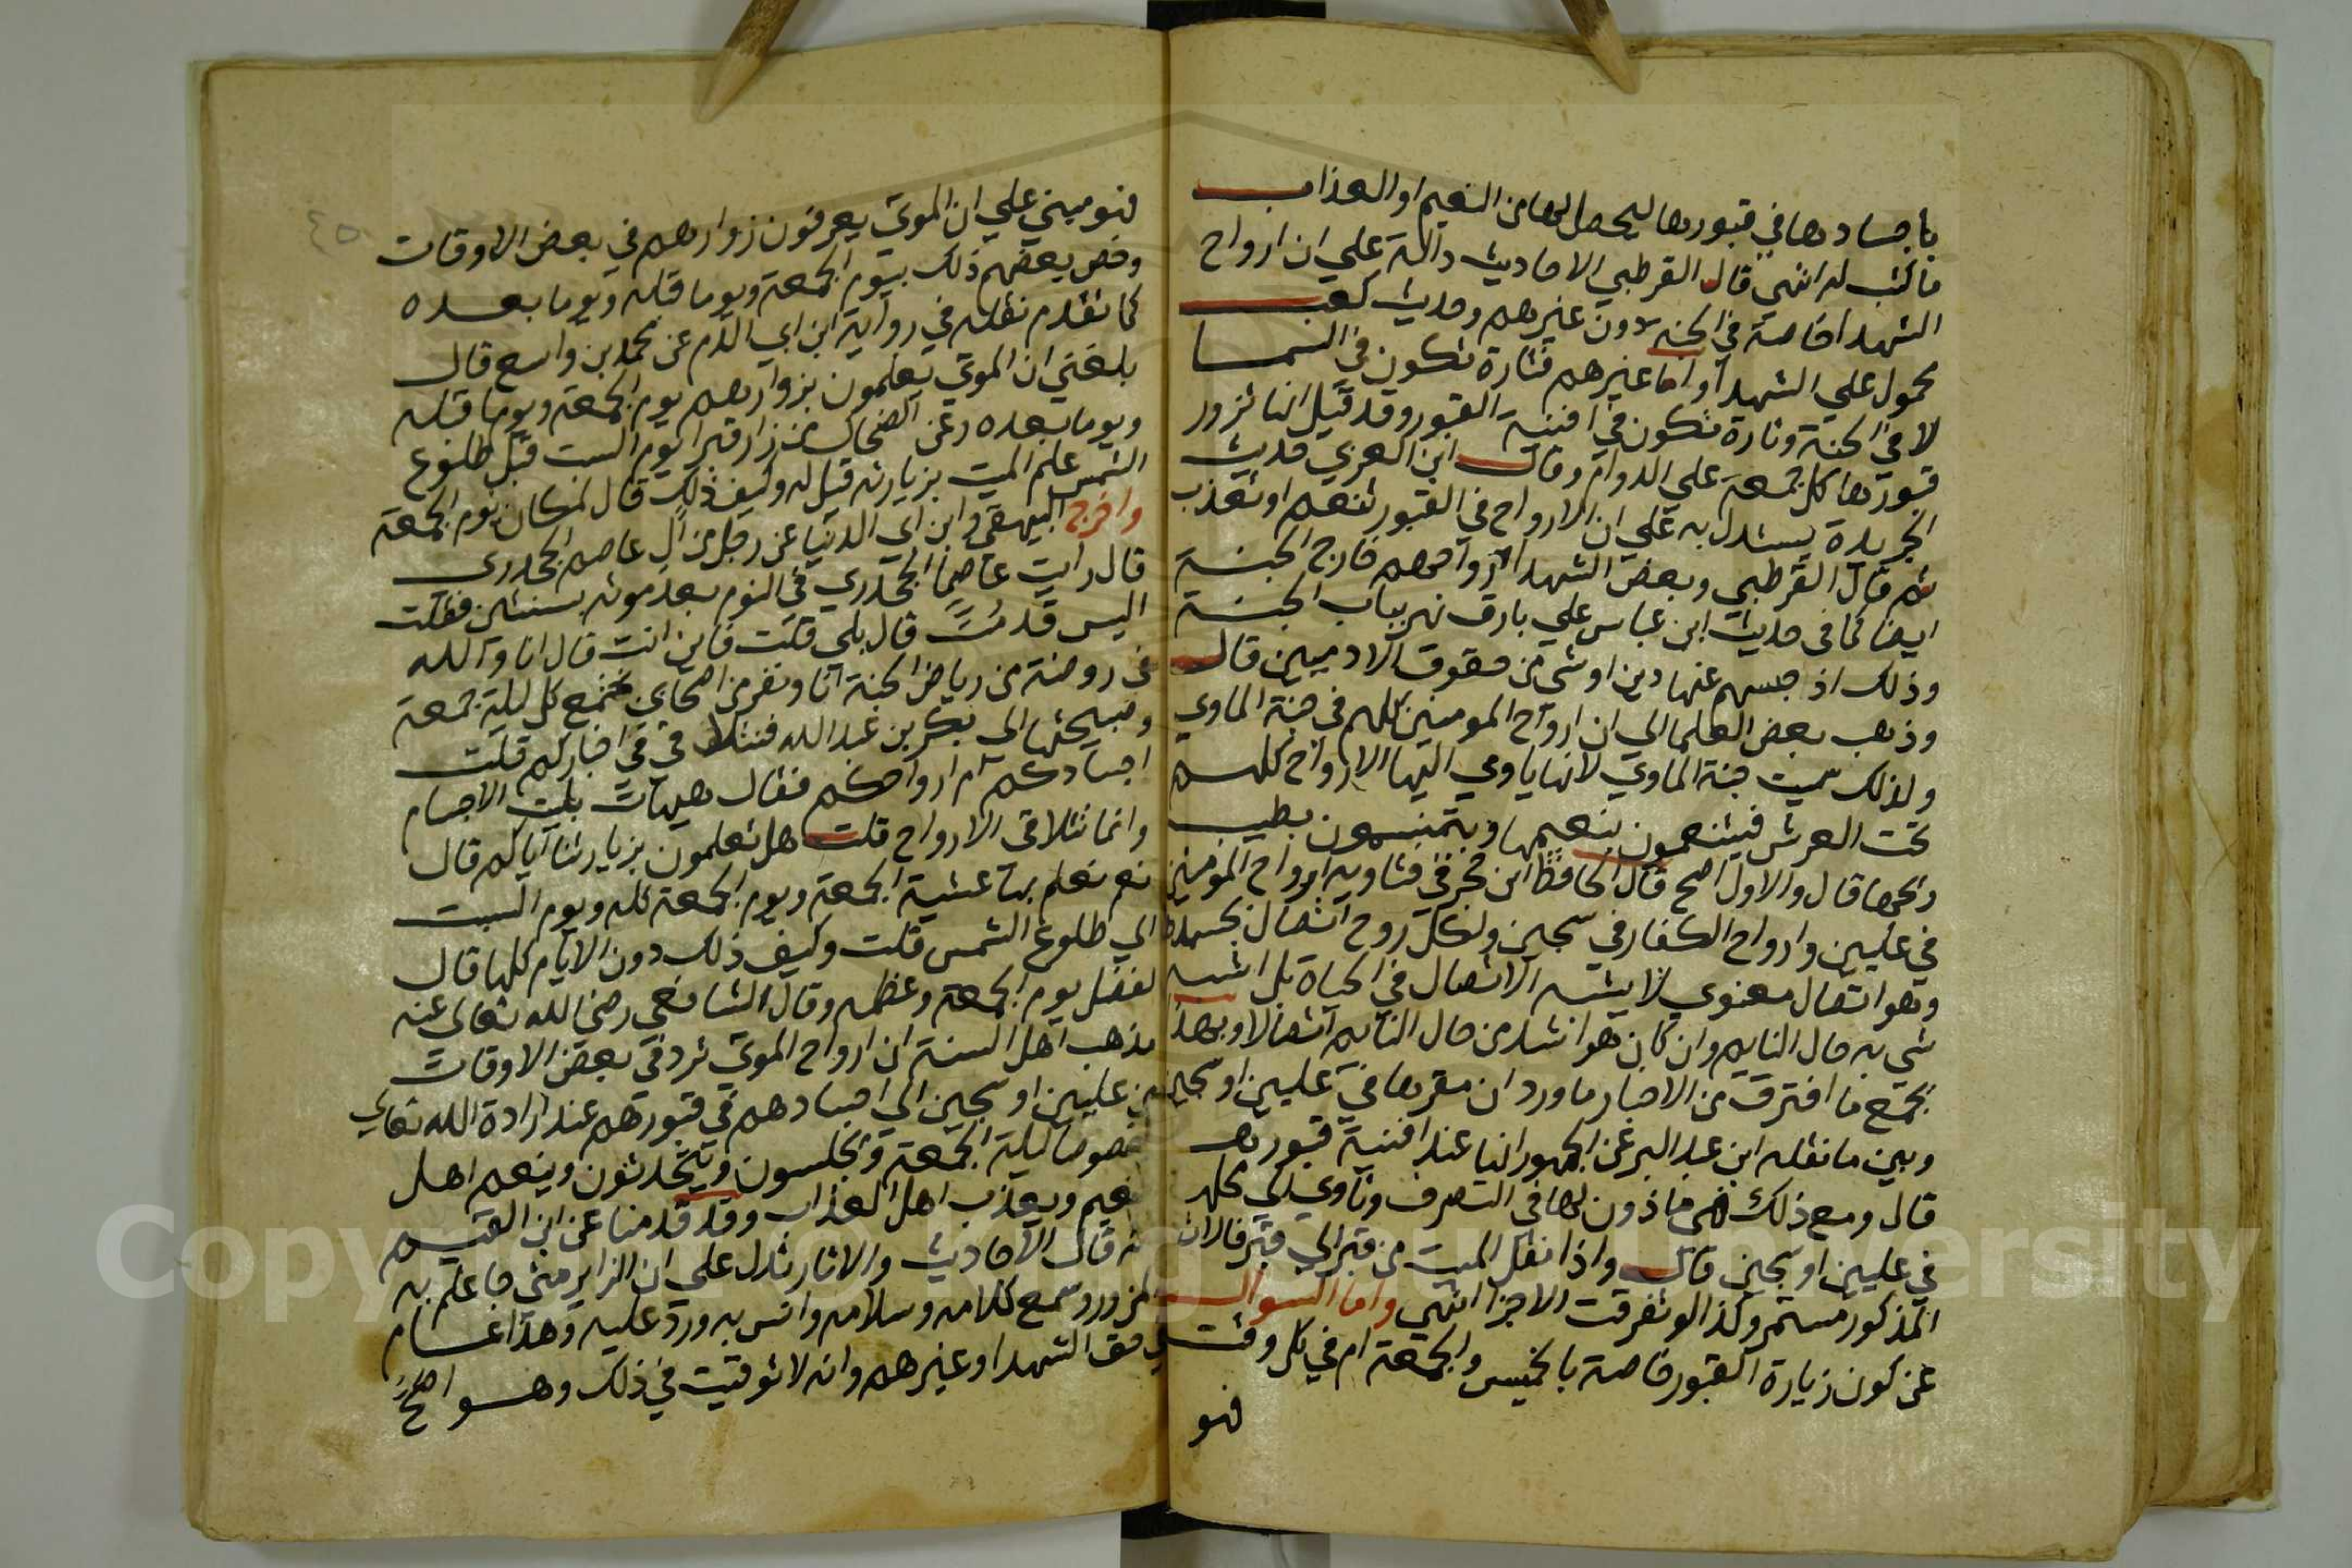 باجسادها في قبورها ليحصل لها من النعيم او العذاب
ما كتب له انتهي قال القرطبي الاحاديث دالة علي ان ارواح
الشهدا خاصة في الجنة دون غيرهم وحديث كعب
محمول علي الشهدا واما غيرهم فتارة تكون في السما
لا في الجنة وتارة تكون في افنية القبور وقد قيل انها تزور
قبورها كل جمعة علي الدوام وقال ابن العربي حديث
الجريدة يستدل به علي ان الارواح في القبور تنعم او تعذب
ثم قال القرطبي وبعض الشهدا ارواحهم خارج الجنة
ايضا كما في حديث ابن عباس علي بارق نهر بباب الجنة
وذلك اذ حبسهم عنها دين او شي من حقوق الادميين قال
وذهب بعض العلما الي ان ارواح المومنين كلهم في جنة الماوي
ولذلك سميت جنة الماوي لانها ياوي اليها الارواح كلهم
تحت العرش فيتنعمون بنعيمها ويتنسمون بطيب
ريحها قال والاول اصح قال الحافظ ابن حجر في فتاويه ارواح المومنين
في عليين وارواح الكفار في سجين ولكل روح اتصال بجسدها
وهو اتصال معنوي لا يشبه الاتصال في الحياة بل اشبه
شي به حال النايم وان كان هو اشد من حال النايم اتصالا وبهذا
يجمع ما افترق من الاخبار ما ورد ان مقرها في عليين او سجين
وبين ما نقله ابن عبد البر عن الجمهور انها عند افنية قبورها
قال ومع ذلك فهي ماذون لها في التصرف وتاوي الي محلها
في عليين او سجين قال واذا نقل الميت من قبر الي قبر فالاتصال
المذكور مستمر وكذا لو تفرقت الاجزا انتهي واما السوال
عن كون زيارة القبور خاصة بالخميس والجمعة ام في كل وقت
فهو
٤٥
فهو مبني علي ان الموتي يعرفون زوارهم في بعض الاوقات
وخص بعضهم ذلك بيوم الجمعة ويوما قبله ويوما بعده
كما تقدم نقله في رواية ابن ابي الدم عن محمد بن واسع قال
بلغني ان الموتي يعلمون بزوارهم يوم الجمعة ويوما قبله
ويوما بعده وعن الضحاك من زار قبرا يوم السبت قبل طلوع
الشمس علم الميت بزيارته قيل له وكيف ذلك قال لمكان يوم الجمعة
واخرج البيهقي وابن ابي الدنيا عن رجل من ال عاصم الجحدري
قال رايت عاصما الجحدري في النوم بعد موته بسنتين فقلت
اليس قد مت قال بلي قلت فاين انت قال انا والله
في روضة من رياض الجنة انا ونفر من اصحابي نجتمع كل ليلة جمعة
وصبيحتها الي بكر بن عبد الله فنتلاقي في اخباركم قلت
اجسادكم ام ارواحكم فقال هيهات بليت الاجسام
وانما تتلاقي الارواح قلت هل تعلمون بزيارتنا اياكم قال
نعم نعلم بها عشية الجمعة ويوم الجمعة كله ويوم السبت
الي طلوع الشمس قلت وكيف ذلك دون الايام كلها قال
لفضل يوم الجمعة وعظمه وقال الشافعي رضي الله تعالي عنه
مذهب اهل السنة ان ارواح الموتي ترد في بعض الاوقات
من عليين او سجين الي اجسادهم في قبورهم عند ارادة الله تعالي
خصوصا ليلة الجمعة ويجلسون ويتحدثون وينعم اهل
النعيم ويعذب اهل العذاب وقد قدمنا عن ابن القيم
انه قال الاحاديث والاثار تدل علي ان الزاير متي جا علم به
المزور وسمع كلامه وسلامه وانس به ورد عليه وهذا عام
في حق الشهدا وغيرهم وانه لا توقيت في ذلك وهو اصح
Copyright © King Saud University